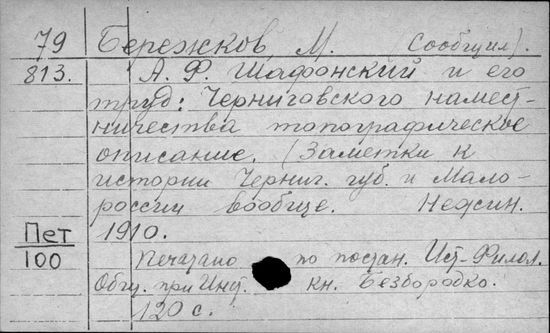 79 Бережков, М. (Сообщил).
813. А. Ф. Шафонский и его
труд: Черниговского намест-
ничества топографическое
описание. (Заметки к
истории Черниг. губ. и Мало-
россии вообще. Нежин.
Пет 1910.
100 Печатано по постан. Ист.-Филол.
Общ. при Инст. кн. Безбородко.
120 с.